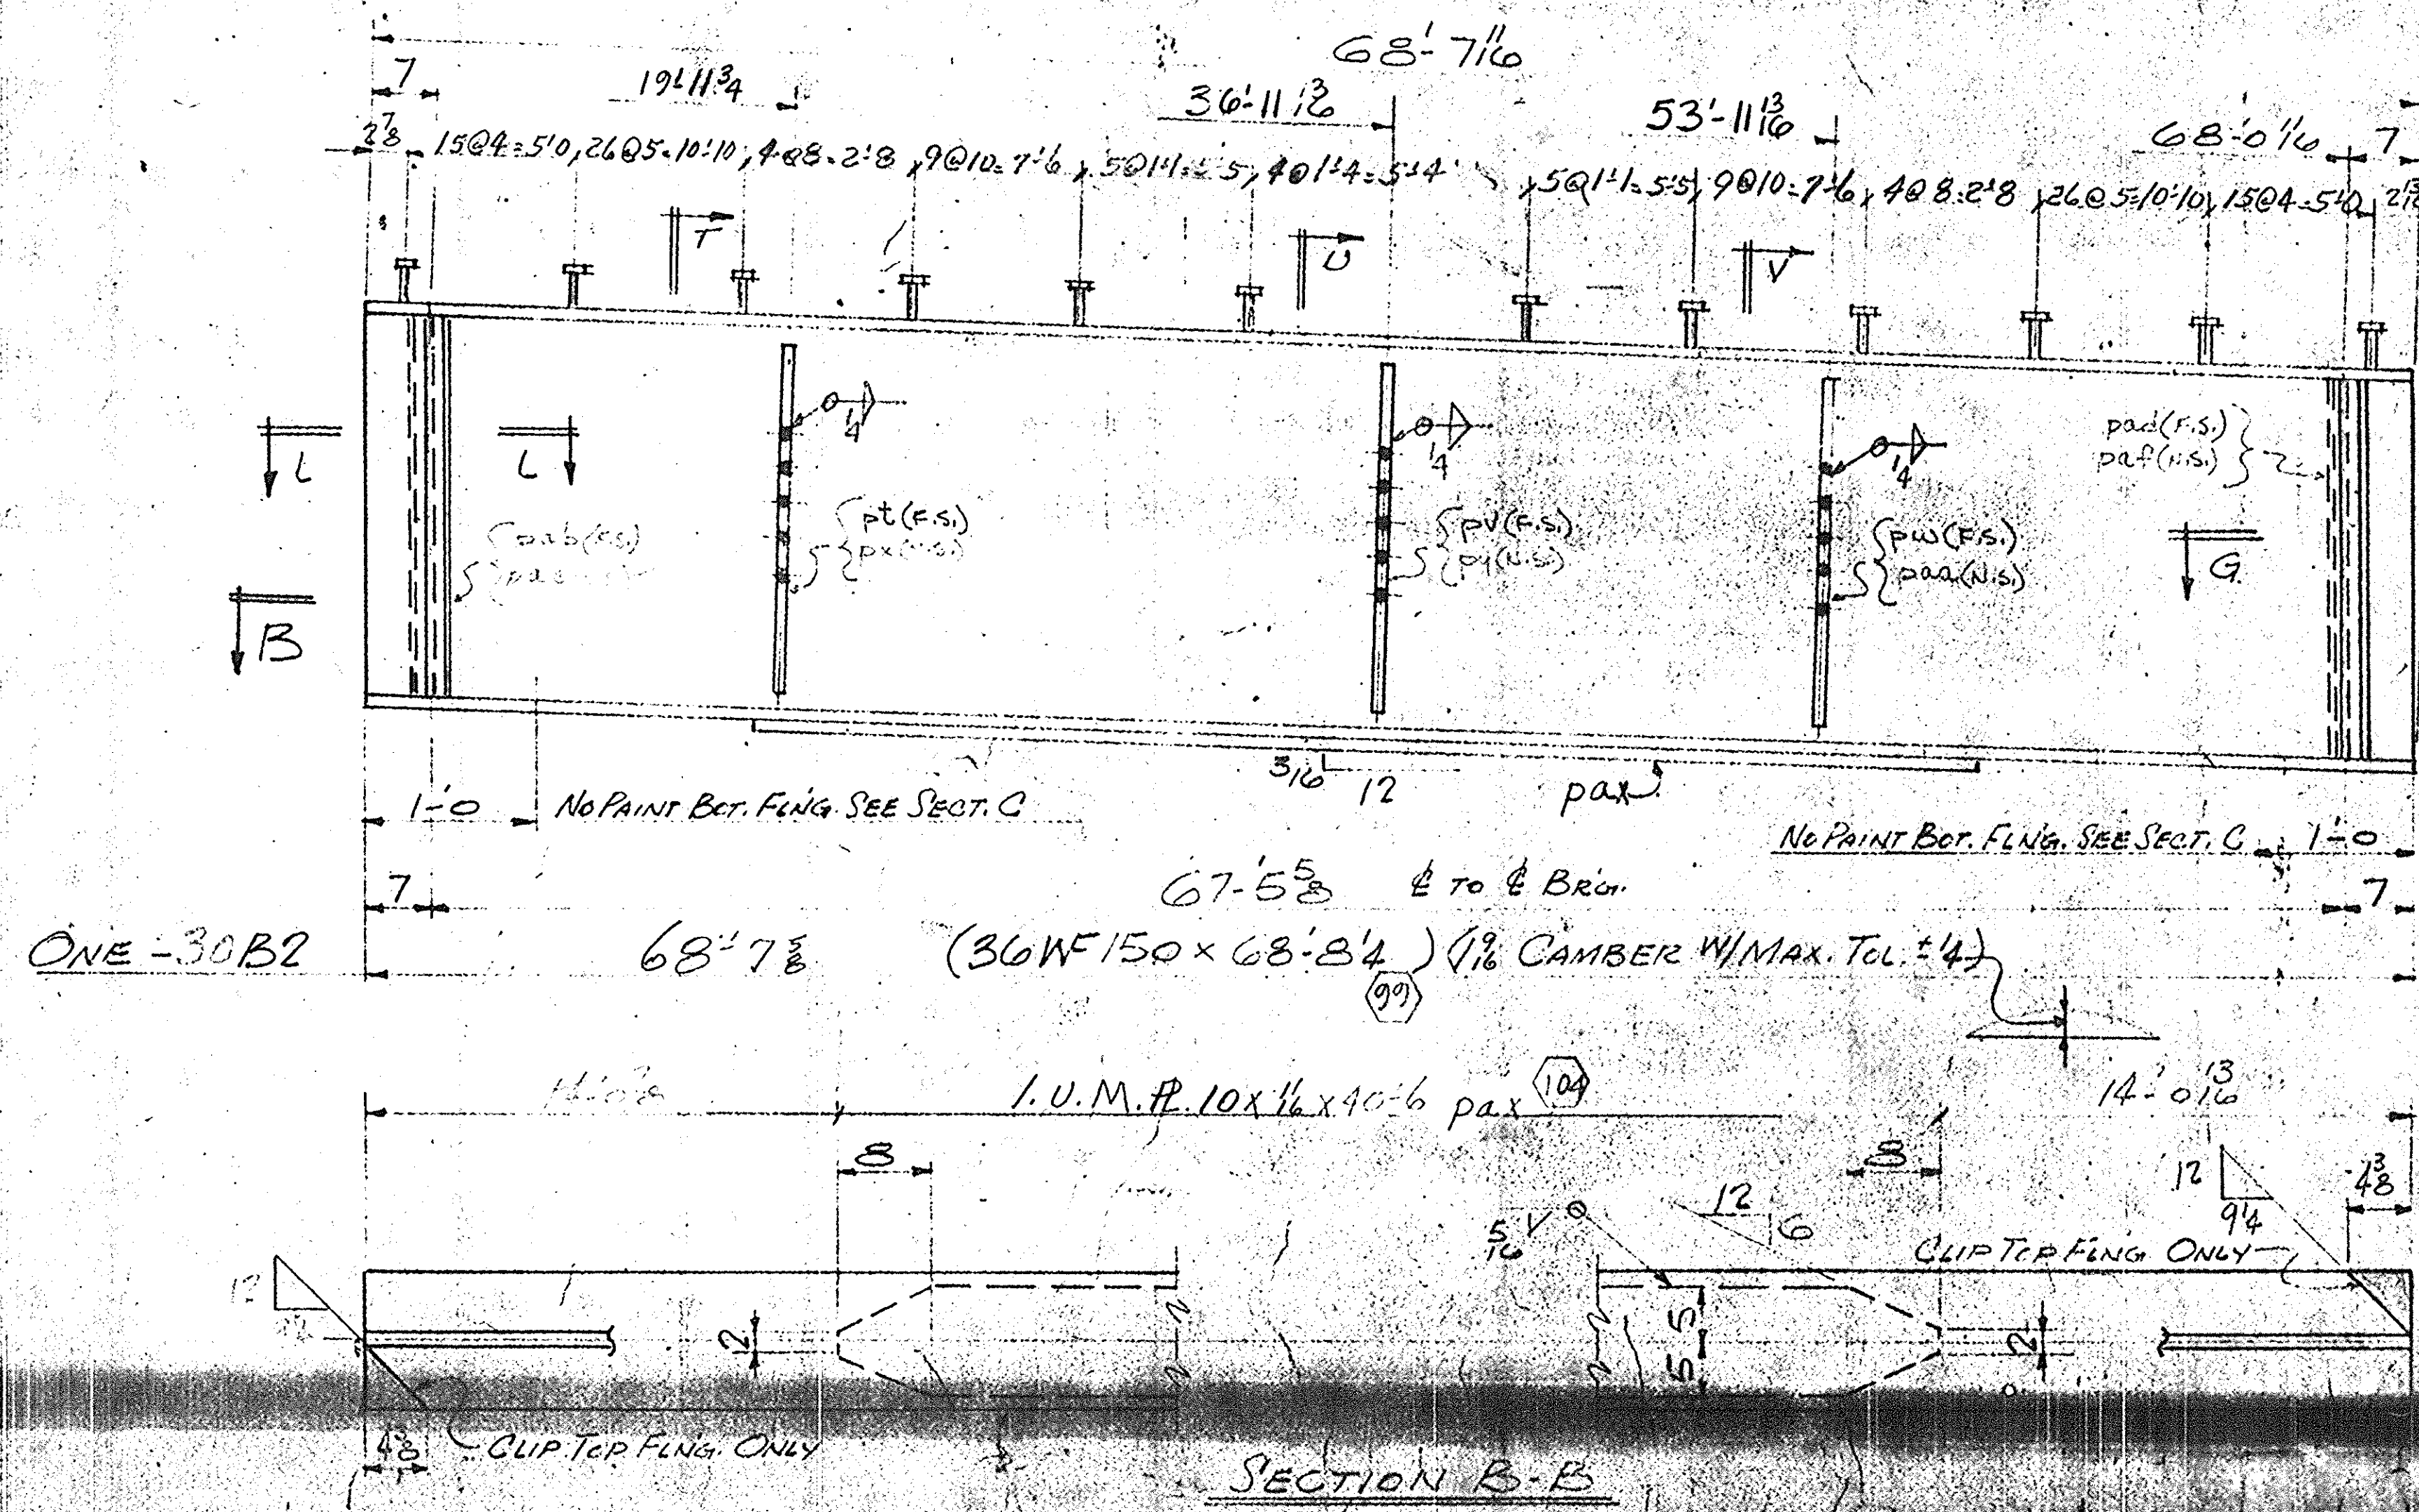 68'-7 11/16
7
19'-11 3/4
36'-11 13/16
53'-11 13/16
68'-0 11/16
7
2 7/8
15@4=5'0, 26@5=10'-10, 4@8=2'-8, 9@10=7'-6, 5@1'-1= 5, 4@1'-4=5'-4
5@1'-1=5'-5, 9@10=7'-6, 4@8=2'-8, 26@5=10'-10, 15@4=5'-0
T
U
V
1/4
1/4
1/4
pad(F.S.)
paf(N.S.)
L
L
pab(F.S.)
pt(F.S.)
px(N.S.)
pv(F.S.)
py(N.S.)
pw(F.S.)
paa(N.S.)
G
B
3/16
12
pax
1'-0
NO PAINT BOT. FLNG. SEE SECT. C
NO PAINT BOT. FLNG. SEE SECT. C
1'-0
7
67'-5 5/8 ℄ TO ℄ BRG.
7
ONE - 30B2
68'-7 5/8
(36WF150 x 68'-8 1/4) (1 9/16 CAMBER W/MAX. TOL. ±1/4)
99
1. U.M. PL 10 x 11/16 x 40'-6 pax 104
14'-0 13/16
8
8
12
9 1/4
4 3/8
5/16
12
6
CLIP TOP FLNG. ONLY
2
5
5
2
4 3/8
CLIP TOP FLNG. ONLY
SECTION B-B